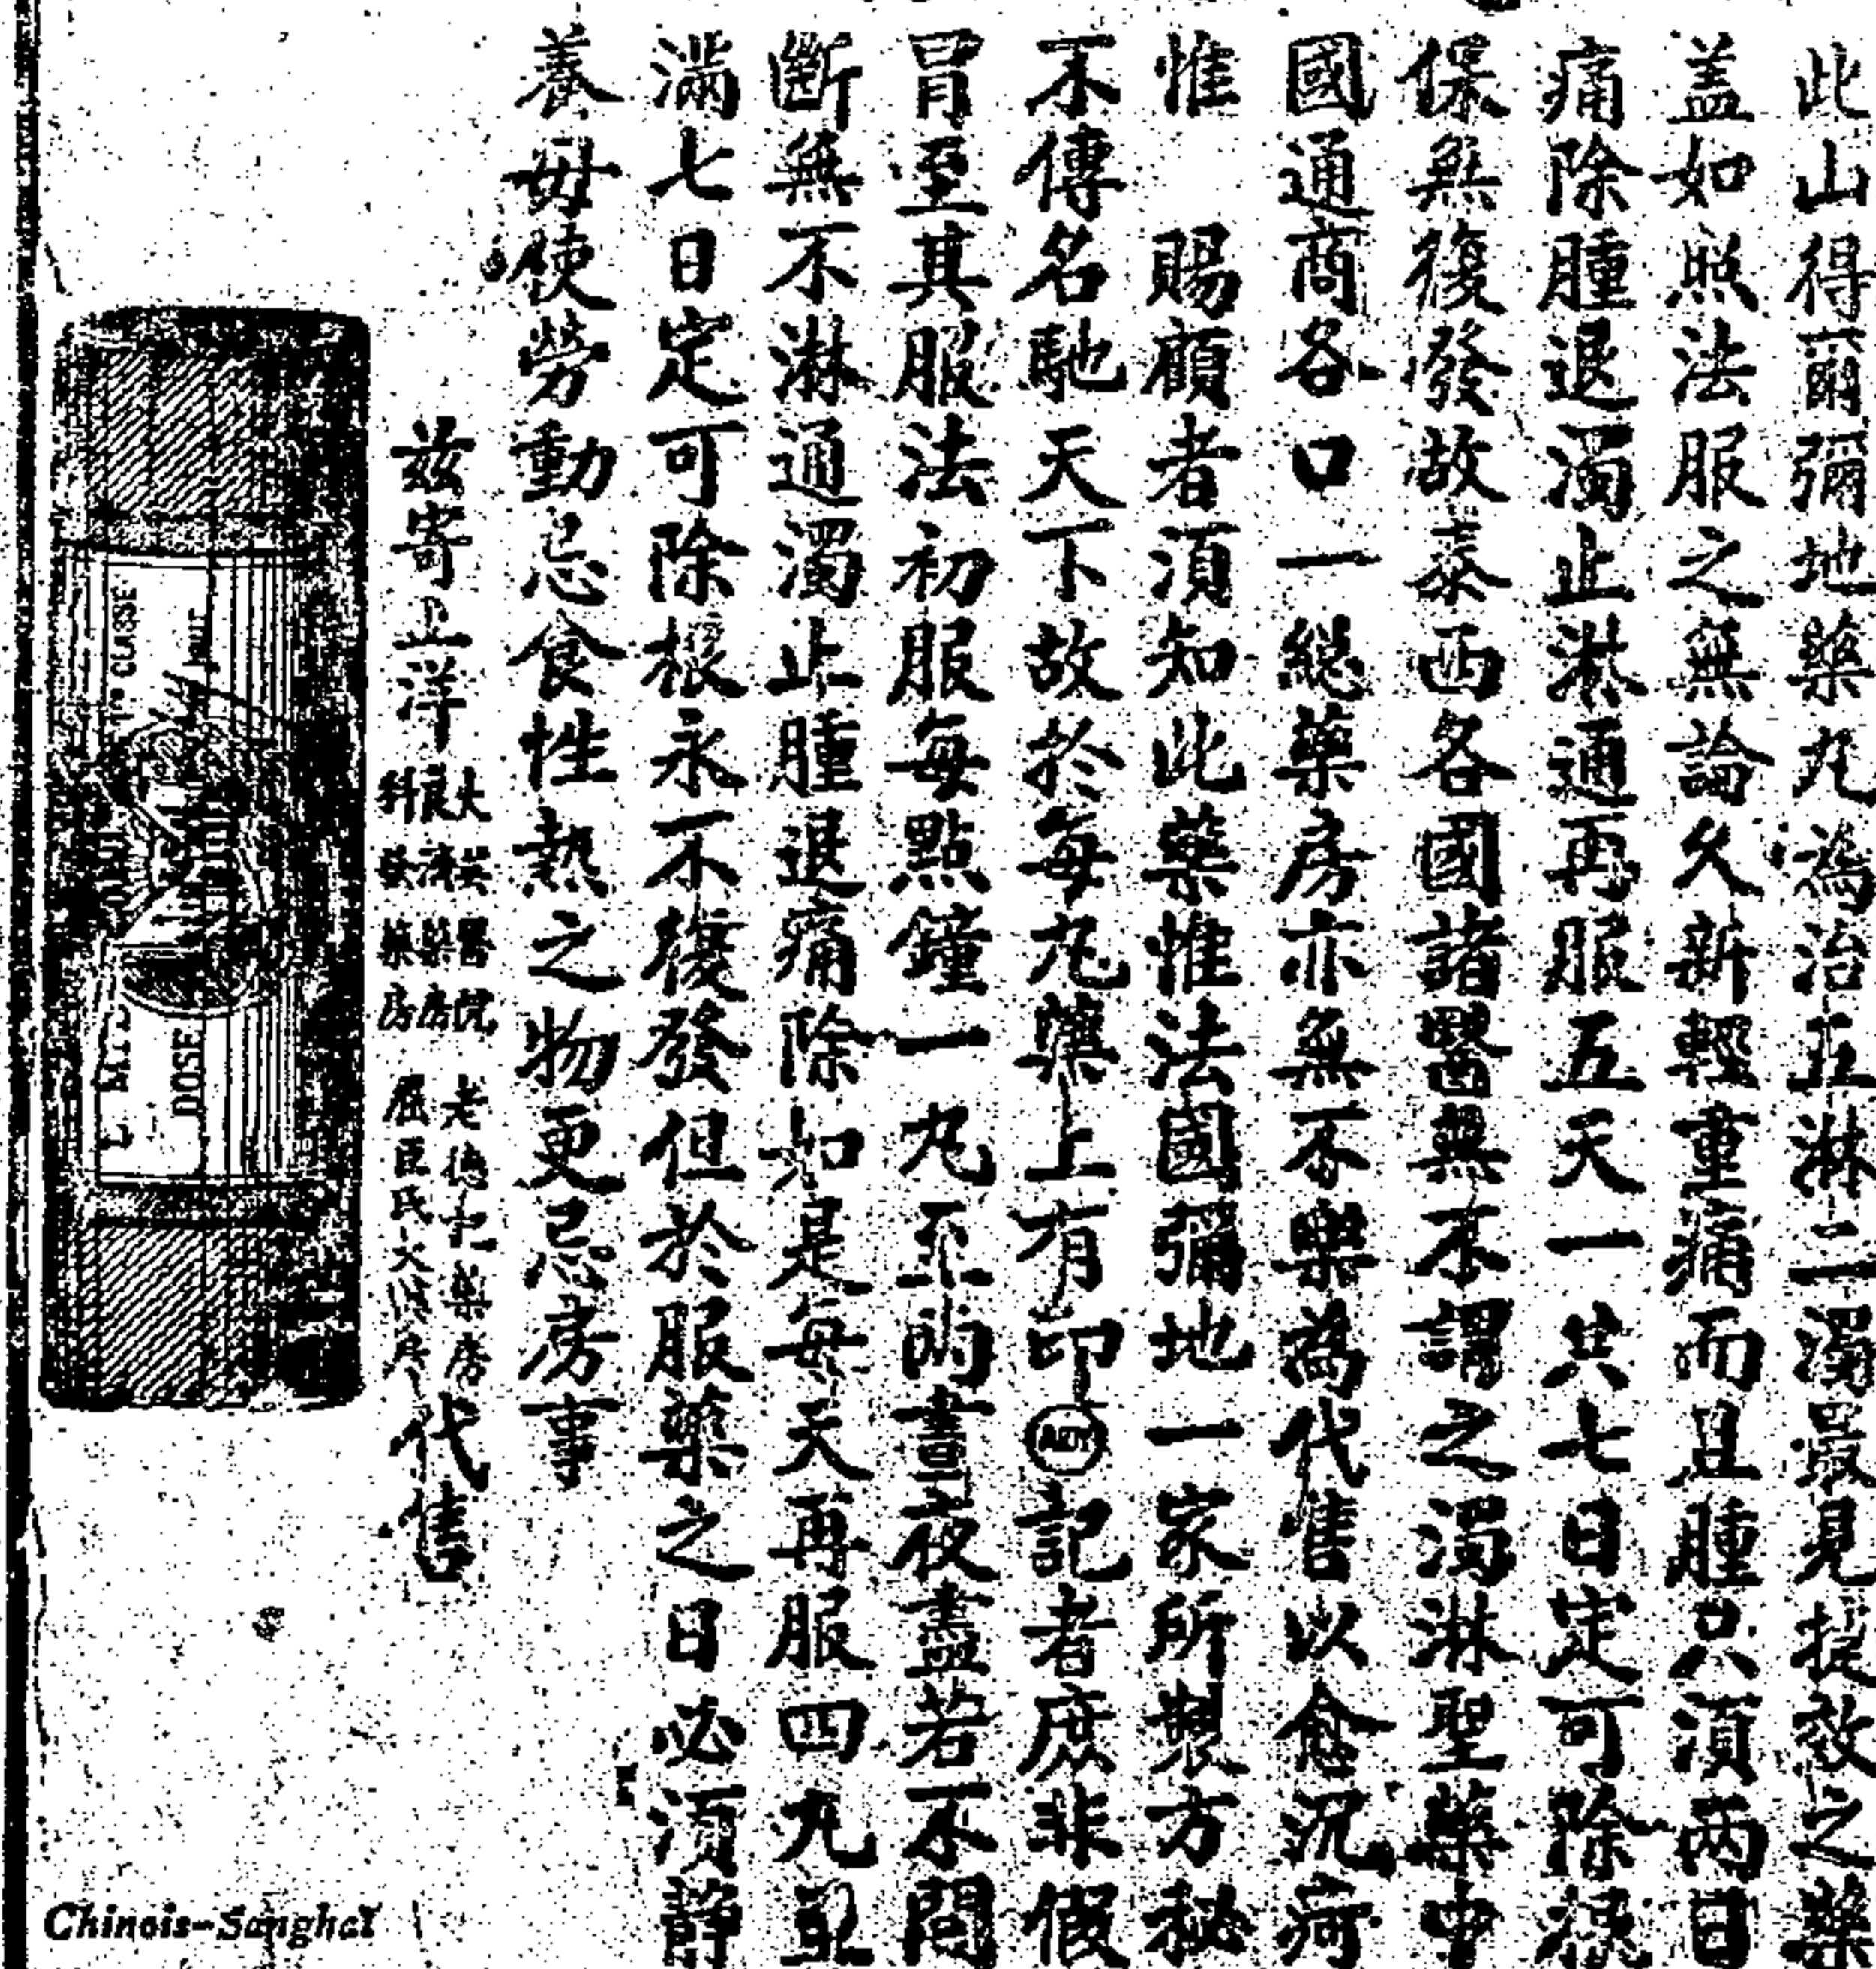 此山得爾彌地藥丸為治五淋二濁最見捉效之藥
盖如照法服之無論久新輕重痛而且腫只須兩日
痛除腫退濁止淋通再服五天一共七日定可除根
保無復發故泰西各國諸醫無不謂之濁淋聖藥中
國通商各口一總藥房亦無不樂為代售以愈沉疴
惟 賜顧者須知此藥惟法國彌地一家所製方秘
不傳名馳天下故於每丸藥上有印記者庶非假
冒至其服法初服每點鐘一丸至兩晝夜盡若不間
斷無不淋通濁止腫退痛除如是每天再服四丸至
滿七日定可除根永不復發但於服藥之日必須靜
養毋使勞動忌食性熱之物更忌房事
茲寄上洋
大英醫院
藥房
科發藥房
老德記藥房
屈臣氏大藥房
代售
CLASSE
DOSE
Chinois-Sanghaï